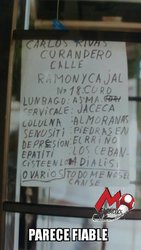 CARLOS RIVAS
CURANDERO
CALLE
RAMONYCAJAL
Nº18CURO
LUNBAGO: ASMA
CERVICALE: JACECA
COLULNA: ALMORANAS
SENUSITI: PIEDRASEN
DEPRESION: ELRRIÑO
EPATITI LOSCEBAN
CISTEENLO DIALIS
OVARIOS: TODOMENOSE
CANSE
PARECE FIABLE